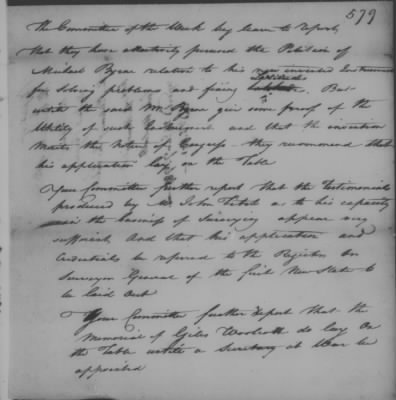 579
The Committee of the Week beg leave to report,
that they have attentively perused the Petition of
Michael Byrne relation to his new invented Instrument
for solving problems and fixing Latitude. But
until the said Mr Byrne give some proof of the
Utility of such Instrument and that the invention
Merits the Notice of Congress - they recommend that
his application lay on the Table
Your Committee further report that the Testimonials
produced by Mr John as to his capacity
in the business of Surveying appear very
sufficient, And that his application and
Credentials be referred to the Register or
Surveyor General of the first New State to
be laid out
Your Committee further report that the
Memorial of Giles do lay on
the Table until a Secretary at War be
appointed